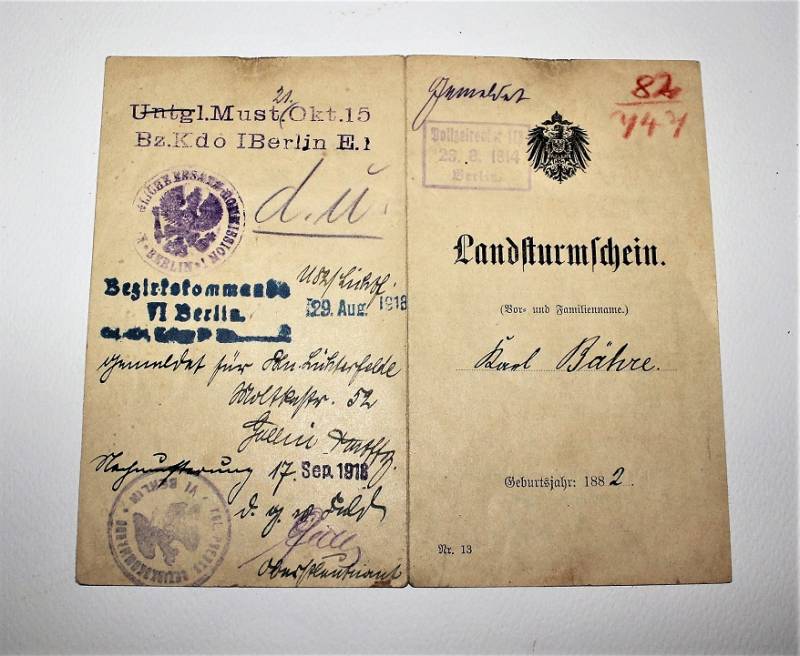 Untgl. Must. 21. Okt. 15
Bz. Kdo I Berlin E. 1
d. u.
BERLIN I
Bezirkskommando
VI Berlin.
29. Aug. 1918
gemeldet für Bln Lichterfelde
Moltkestr. 52
Nachmusterung 17. Sep. 1918
d. g. v. Feld
Oberstleutnant
VI BERLIN
Gemeldet
82
747
Polizeirevier
23. 8. 1914
Berlin.
Landsturmschein.
(Vor- und Familienname.)
Karl Bähre.
Geburtsjahr: 1882.
Nr. 13